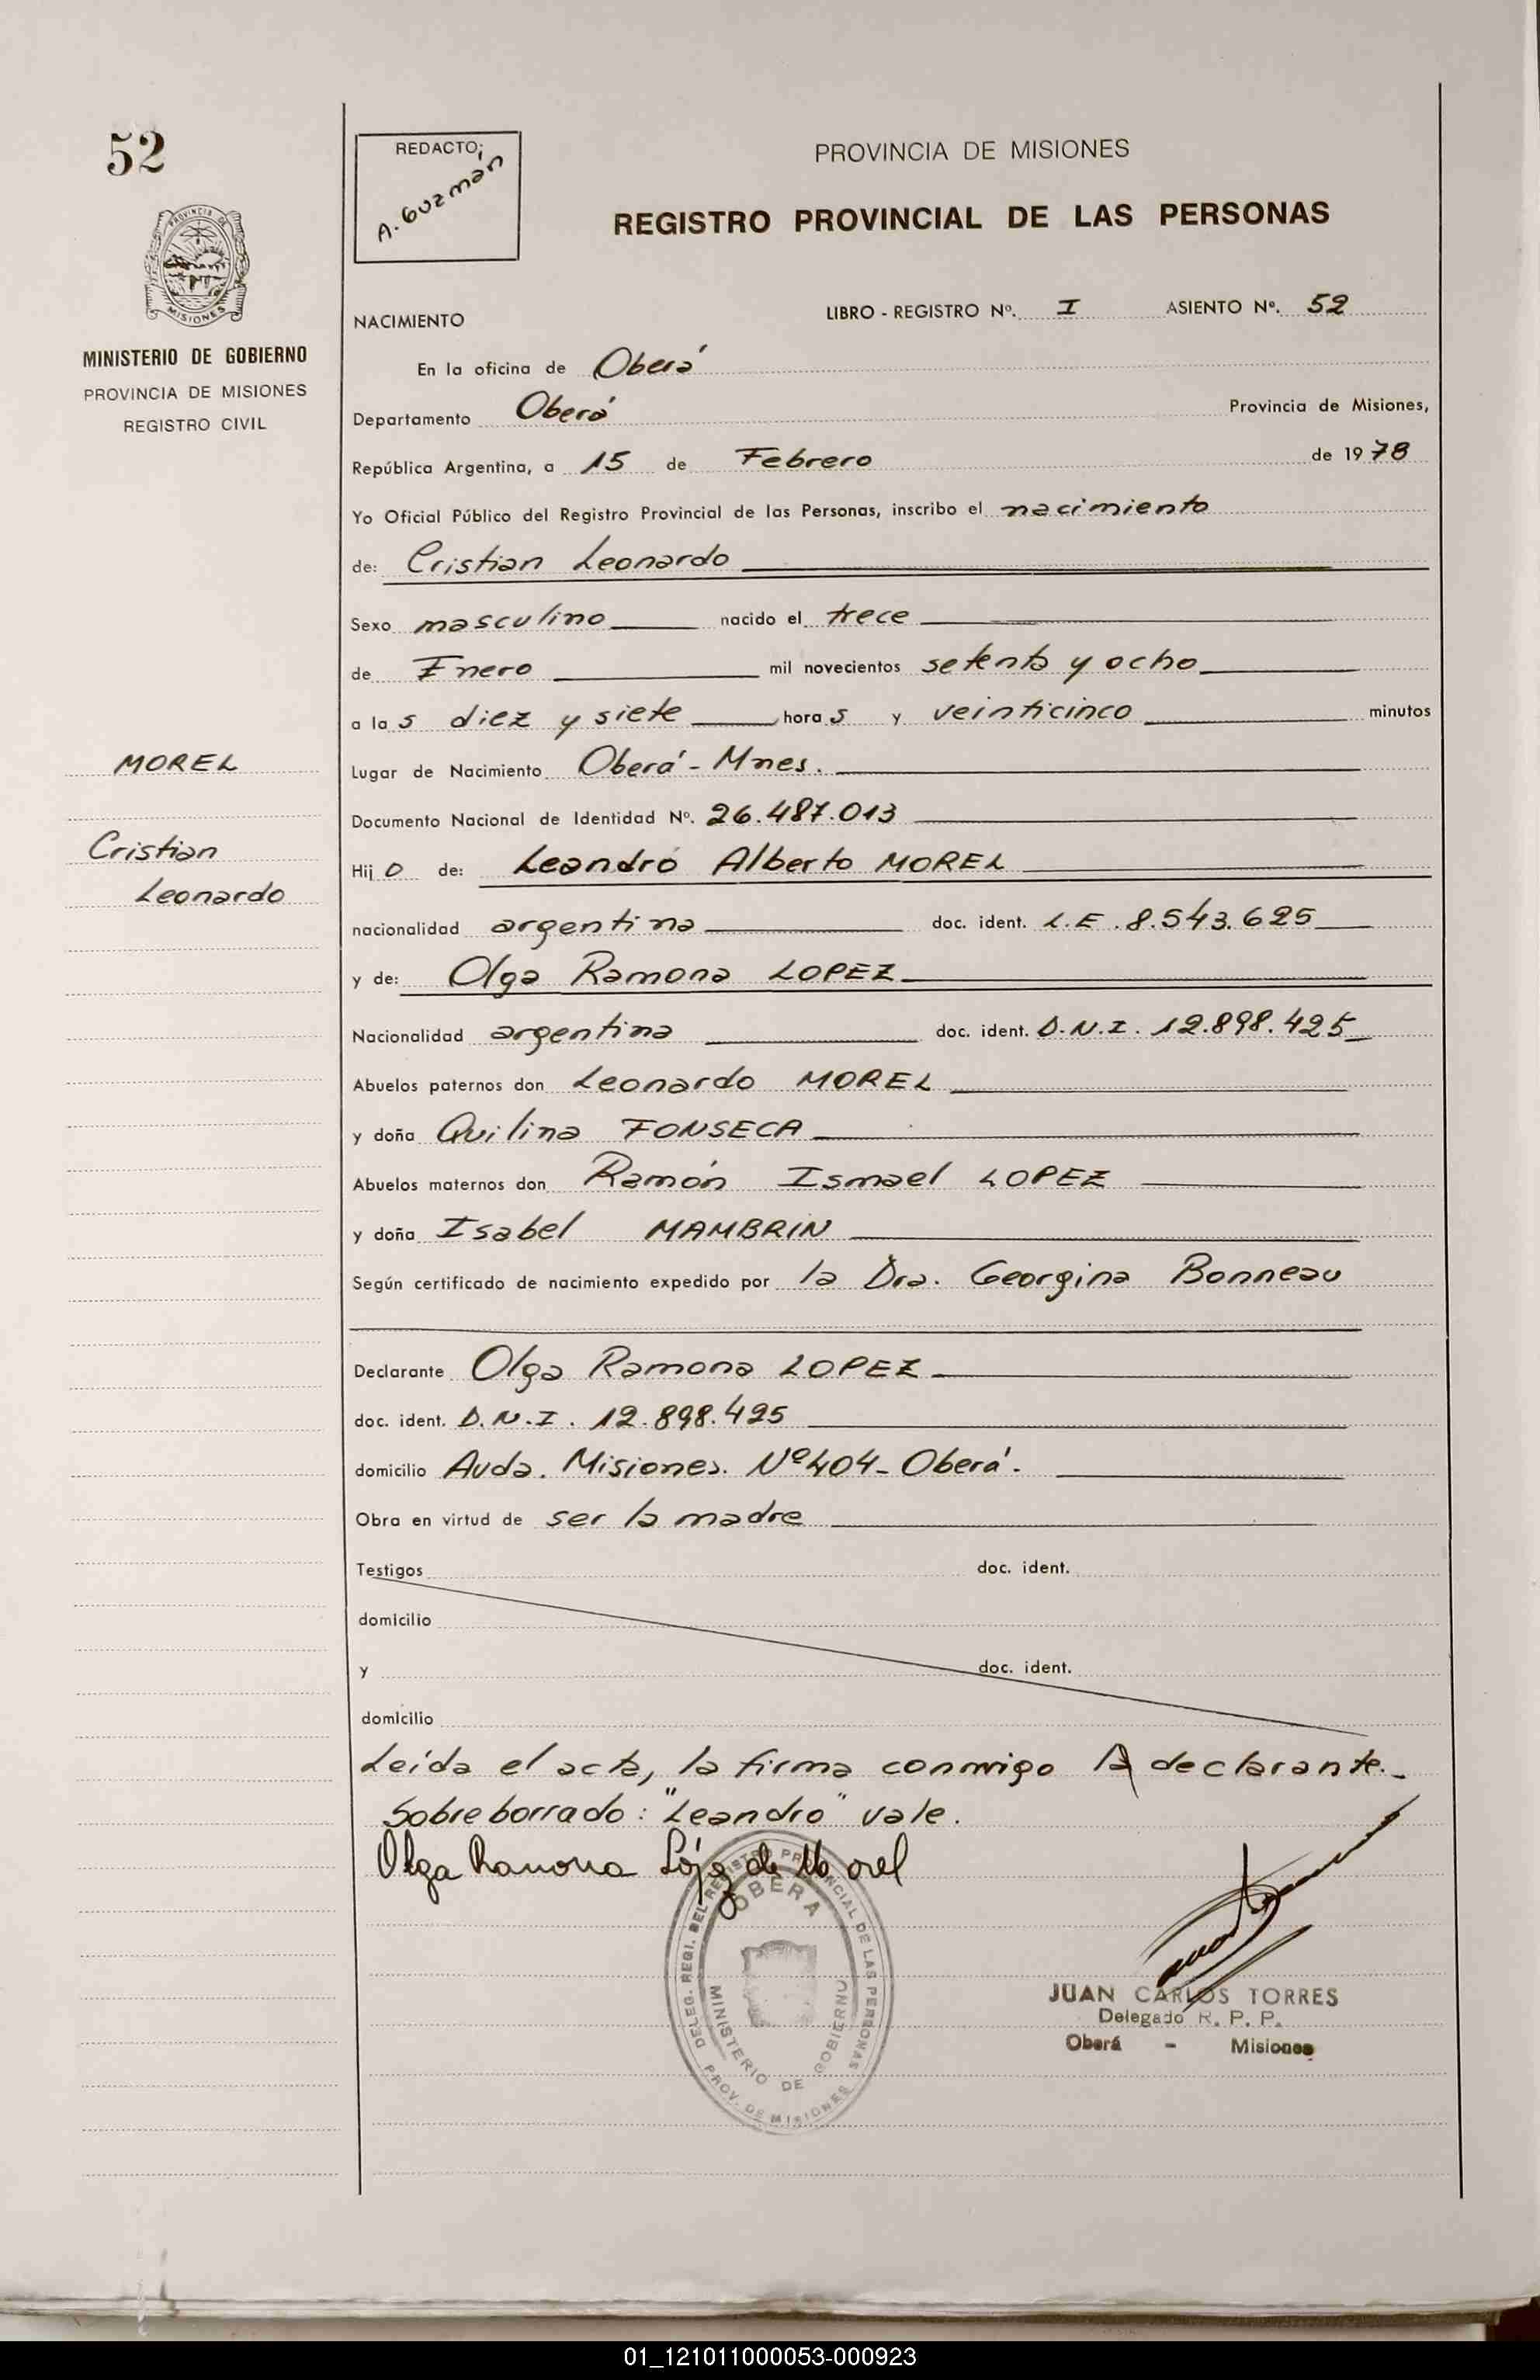 52
PROVINCIA DE
MISIONES
MINISTERIO DE GOBIERNO
PROVINCIA DE MISIONES
REGISTRO CIVIL
MOREL
Cristian
Leonardo
REDACTO:
A. Guzmán
PROVINCIA DE MISIONES
REGISTRO PROVINCIAL DE LAS PERSONAS
NACIMIENTO LIBRO - REGISTRO Nº. I ASIENTO Nº. 52
En la oficina de Oberá
Departamento Oberá Provincia de Misiones,
República Argentina, a 15 de Febrero de 1978
Yo Oficial Público del Registro Provincial de las Personas, inscribo el nacimiento
de: Cristian Leonardo
Sexo masculino nacido el trece
de Enero mil novecientos setenta y ocho
a las diez y siete horas y veinticinco minutos
Lugar de Nacimiento Oberá - Mnes.
Documento Nacional de Identidad Nº. 26.487.013
Hijo de: Leandro Alberto MOREL
nacionalidad argentina doc. ident. L.E. 8.543.625
y de: Olga Ramona LOPEZ
Nacionalidad argentina doc. ident. D.N.I. 12.898.425
Abuelos paternos don Leonardo MOREL
y doña Quilina FONSECA
Abuelos maternos don Ramón Ismael LOPEZ
y doña Isabel MAMBRIN
Según certificado de nacimiento expedido por la Dra. Georgina Bonneau
Declarante Olga Ramona LOPEZ
doc. ident. D.N.I. 12.898.425
domicilio Avda. Misiones. Nº 404 - Oberá.
Obra en virtud de ser la madre
Testigos doc. ident.
domicilio
y doc. ident.
domicilio
Leída el acta, la firma conmigo la declarante.-
Sobreborrado: "Leandro" vale.
Olga Ramona López de Morel
DELEG. REGI. DEL REGISTRO PROVINCIAL DE LAS PERSONAS
OBERA
MINISTERIO DE GOBIERNO
PROV. DE MISIONES
JUAN CARLOS TORRES
Delegado R. P. P.
Oberá - Misiones
01_121011000053-000923